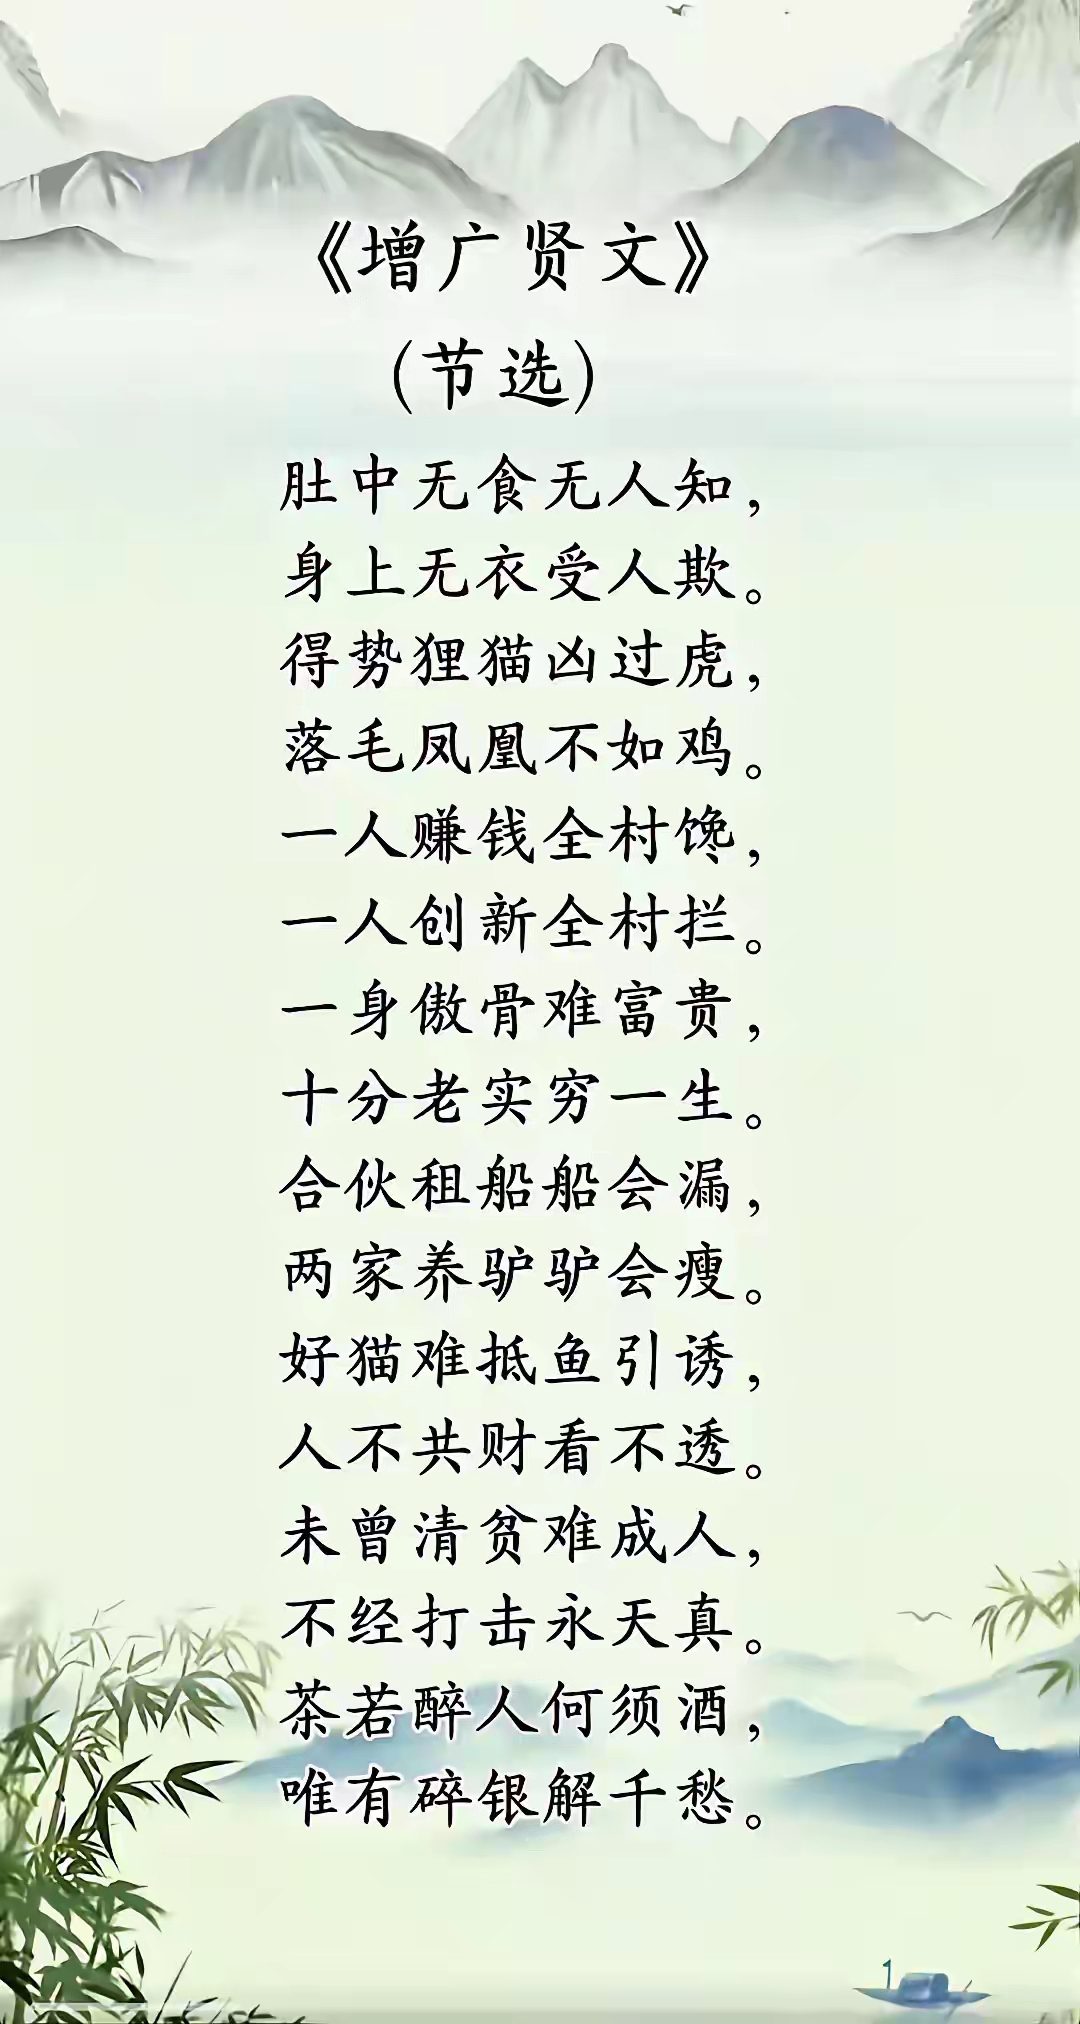 《增广贤文》
(节选)
肚中无食无人知，
身上无衣受人欺。
得势狸猫凶过虎，
落毛凤凰不如鸡。
一人赚钱全村馋，
一人创新全村拦。
一身傲骨难富贵，
十分老实穷一生。
合伙租船船会漏，
两家养驴驴会瘦。
好猫难抵鱼引诱，
人不共财看不透。
未曾清贫难成人，
不经打击永天真。
茶若醉人何须酒，
唯有碎银解千愁。